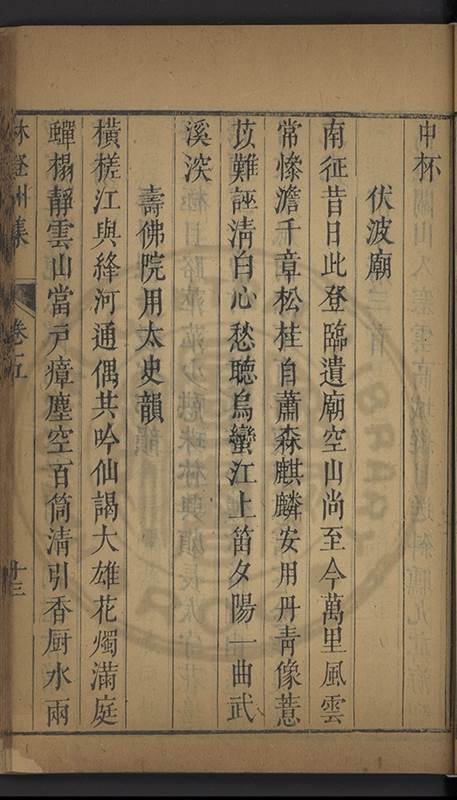 中杯
伏波廟
南征昔日此登臨遺廟空山尚至今萬里風雲
常慘澹千章松桂自蕭森麒麟安用丹青像薏
苡難誣清白心愁聽烏蠻江上笛夕陽一曲武
溪深
壽佛院用太史韻
橫槎江與絳河通偶共吟仙謁大雄花燭滿庭
蟬榻靜雲山當戶瘴塵空百筒清引香厨水兩
林登州集
卷五
十三